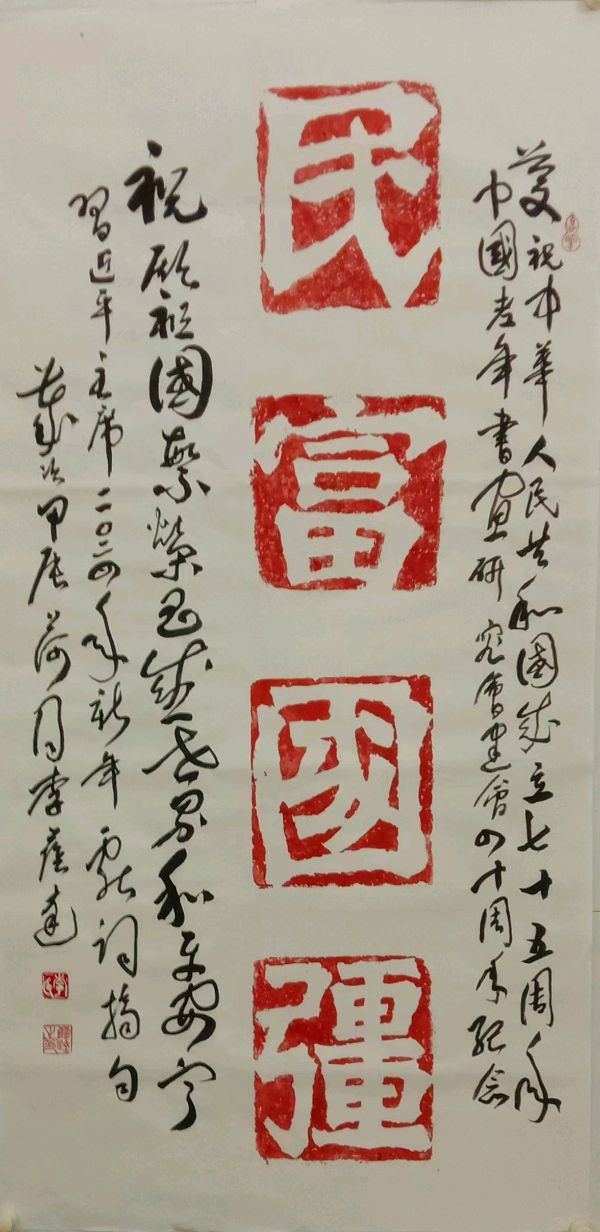 庆祝中華人民共和國成立七十五周年
中國老年書画研究會建會四十周年纪念
民富國強
祝愿祖國繁榮昌盛世界和平安宁
習近平主席二〇二四年新年献词摘句
岁次甲辰荷月李